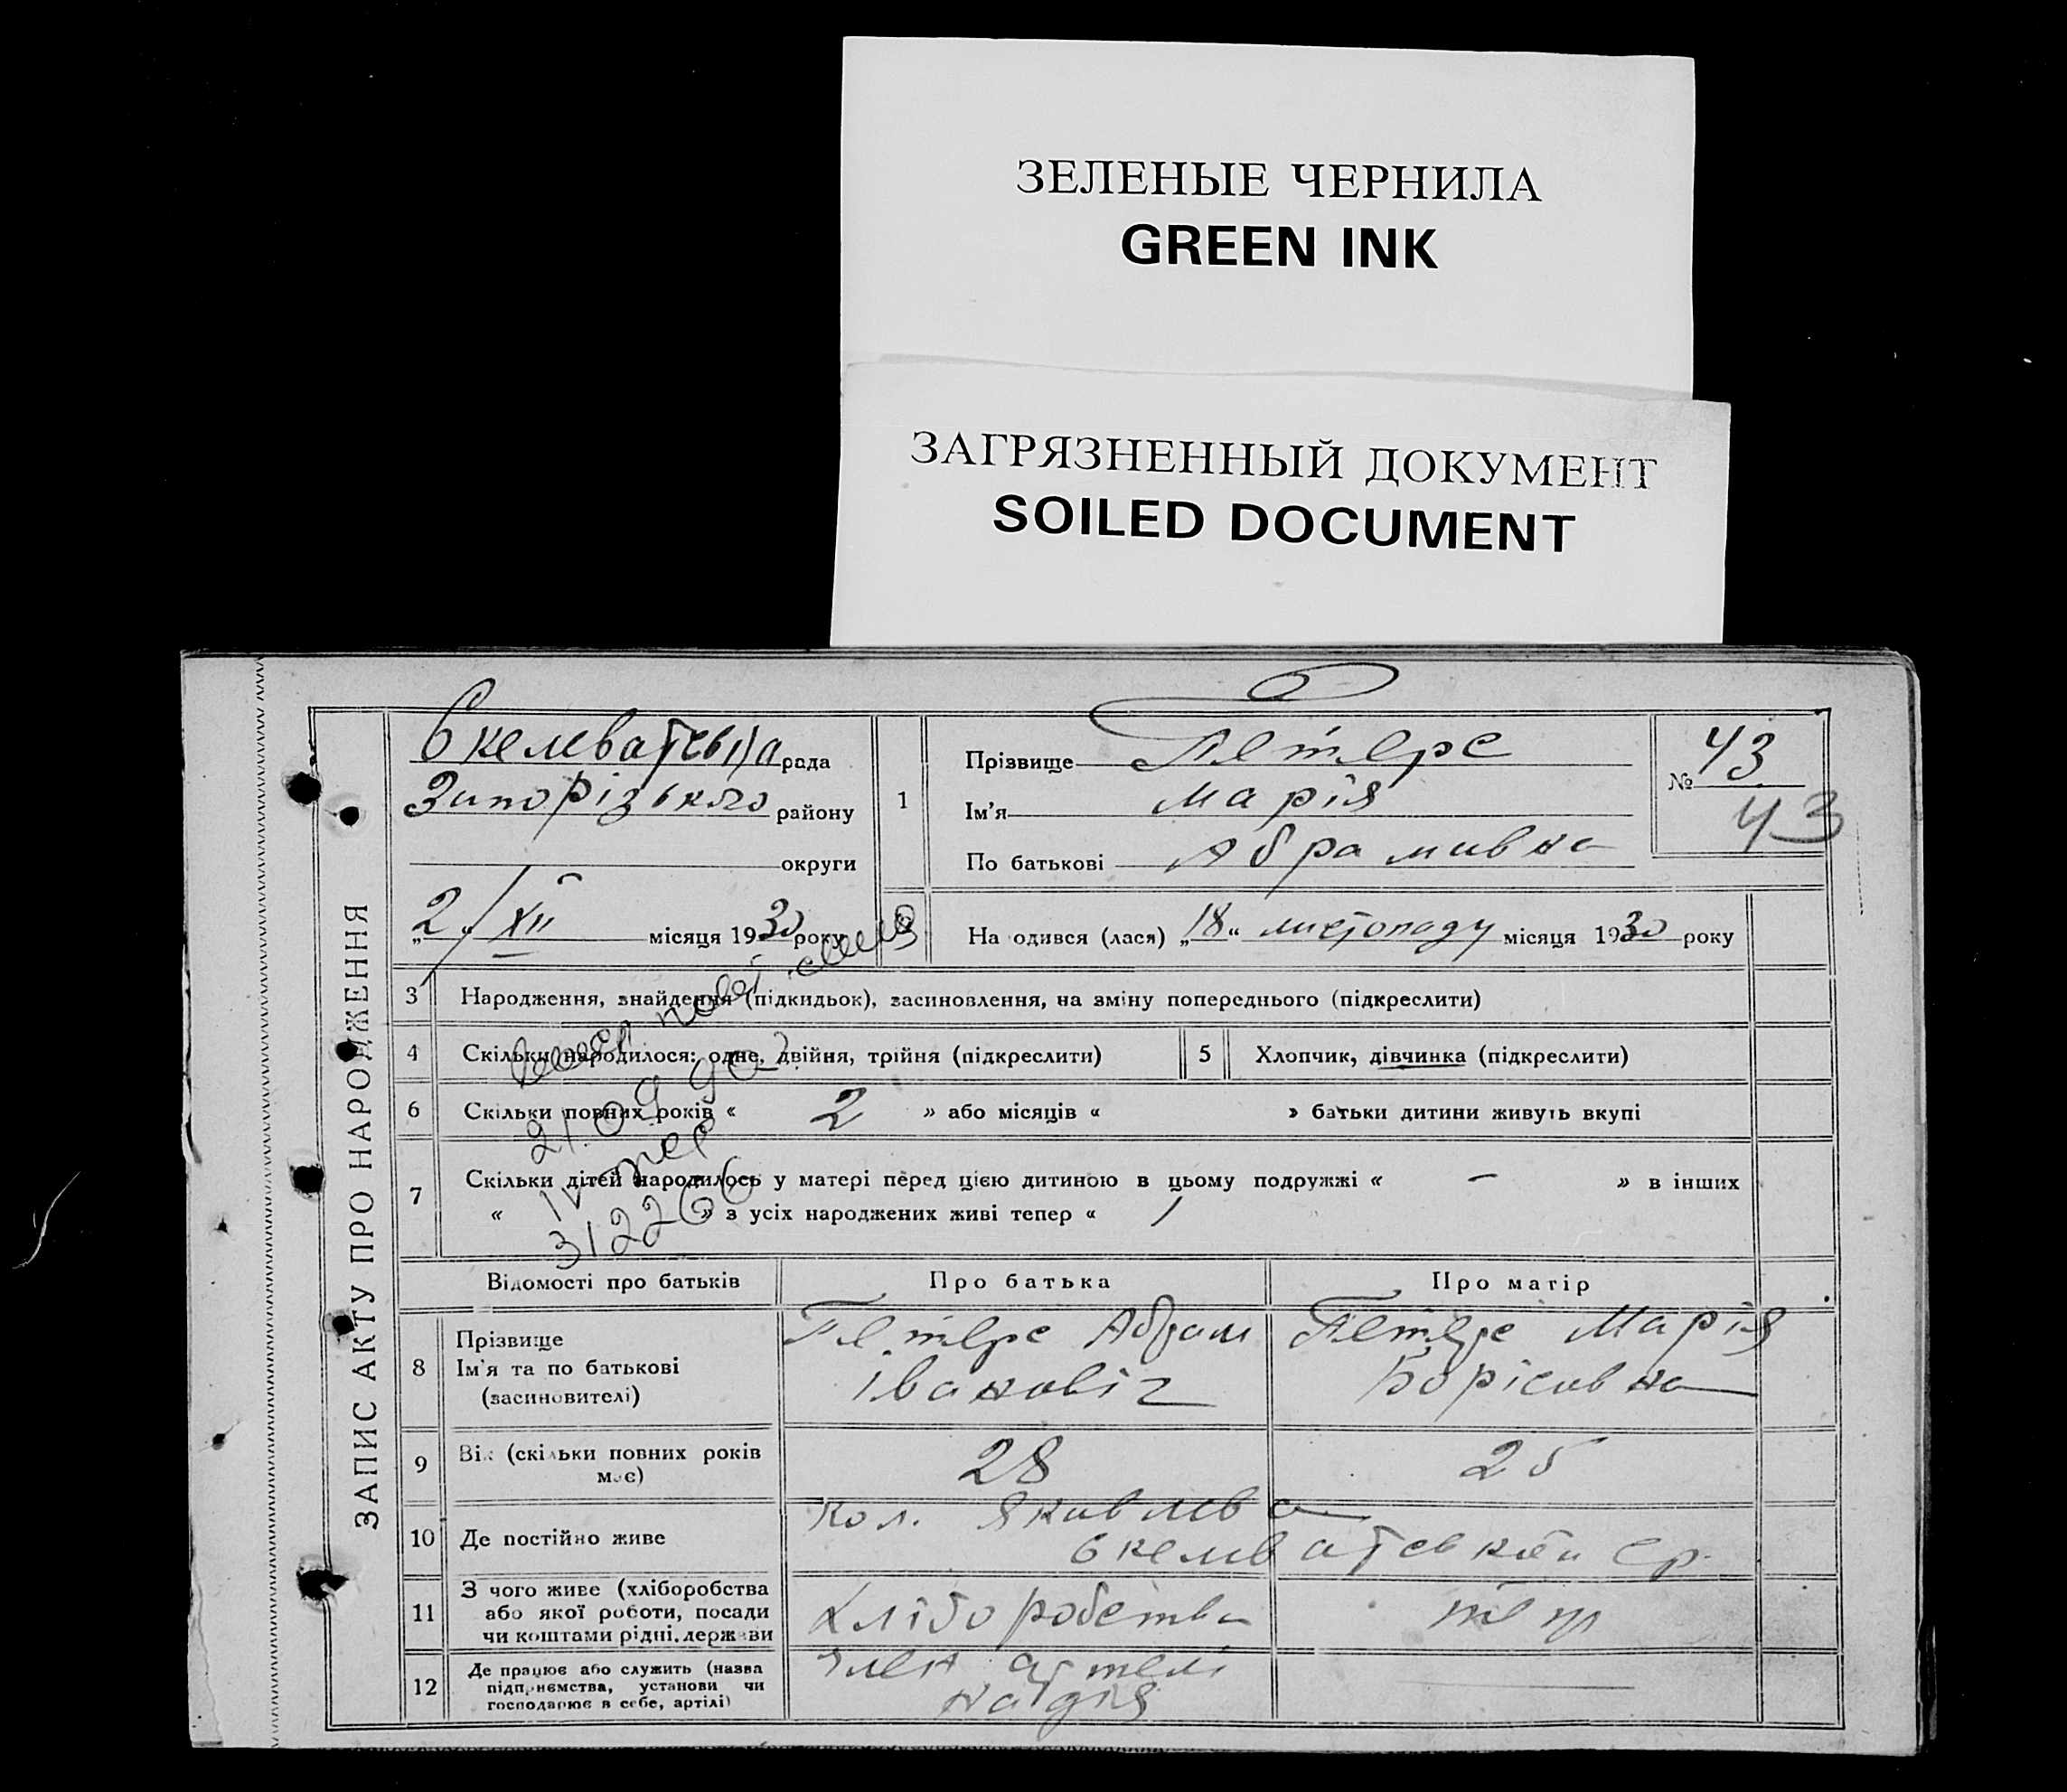 ЗЕЛЕНЫЕ ЧЕРНИЛА
GREEN INK
ЗАГРЯЗНЕННЫЙ ДОКУМЕНТ
SOILED DOCUMENT
ЗАПИС АКТУ ПРО НАРОДЖЕННЯ
рада
Запорізького району
округи
"2" XII місяця 1930 року
1
Прізвище Петерс
Ім'я Марія
По батькові Абрамивна
№ 43
43
На одився (лася) „18“ листопаду місяця 1930 року
3 Народження, знайдення (підкидьок), засиновлення, на зміну попереднього (підкреслити)
4 Скільки народилося: одне, двійня, трійня (підкреслити)
5 Хлопчик, дівчинка (підкреслити)
6 Скільки повних років « 2 » або місяців « » батьки дитини живуть вкупі
7 Скільки дітей народилось у матері перед цією дитиною в цьому подружжі « — » в інших
« » з усіх народжених живі тепер « 1
21.09.90
312266
Відомості про батьків Про батька Про матір
8 Прізвище
Ім'я та по батькові
(засиновителі)
Петерс Абрам
Івановіч
Петерс Марія
Борісивна
9 Вік (скільки повних років
має)
28
25
10 Де постійно живе
Кол. Яковлева
ср.
11 З чого живе (хліборобства
або якої роботи, посади
чи коштами рідні, держави
Хліборобства
12 Де працює або служить (назва
підприємства, установи чи
господарює в себе, артілі)
Член артелі
Надія